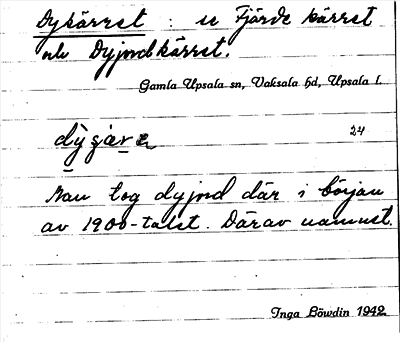 Dykärret : se Fjärde kärret
och Dyjordkärret.
Gamla Upsala sn, Vaksala hd, Upsala l.
24
Man tog dyjord där i början
av 1900-talet. Därav namnet.
Inga Löwdin 1942.